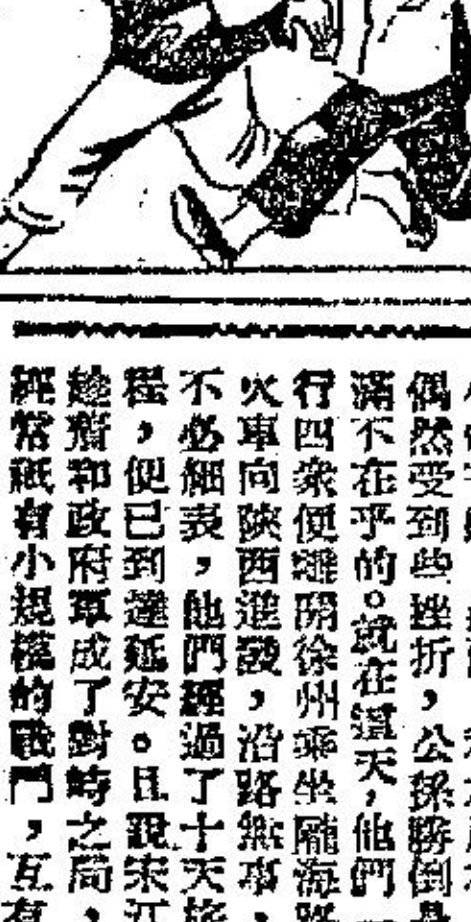 偶然受到些挫折，公孫勝倒
滿不在乎的。就在這天，他們
行四衆便離開徐州乘坐隴海
火車向陝西進發，沿路無事，
不必細表，他們經過了十天旅
程，便已到達延安。且說宋江
和政府軍成了對峙之局，
經常祇有小規模的戰鬥，互有